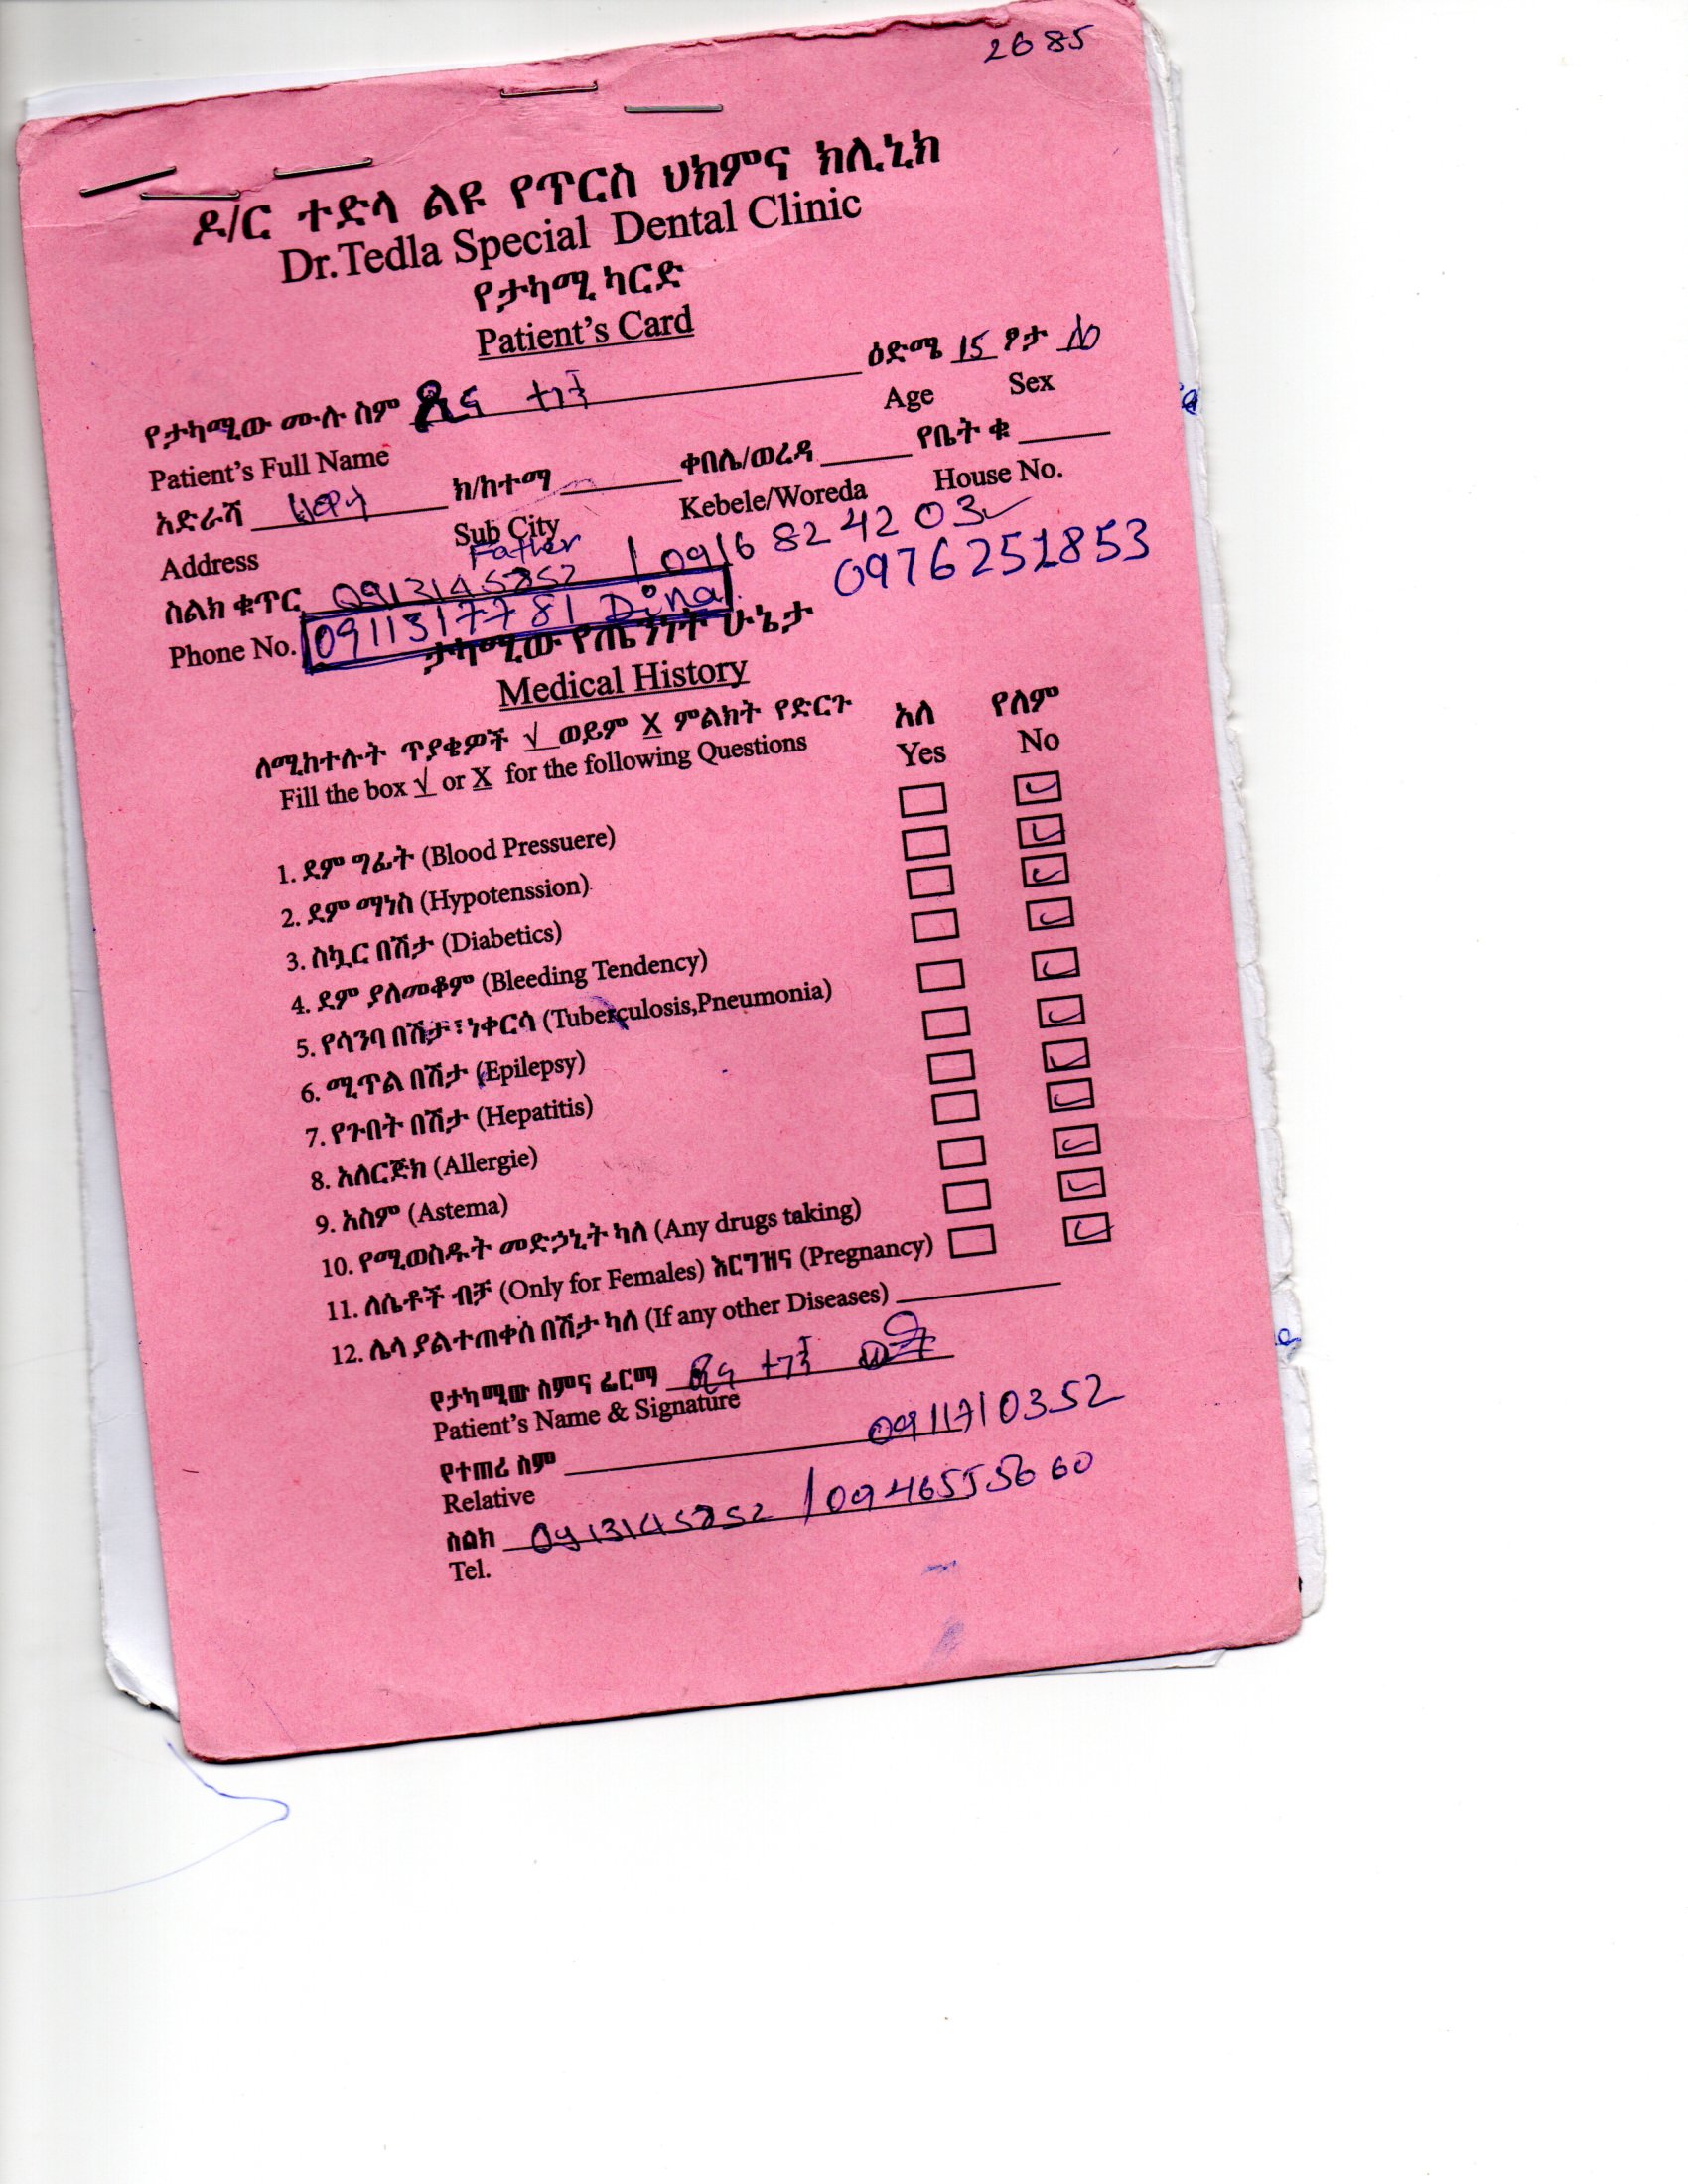 2685
ዶ/ር ተድላ ልዩ የጥርስ ህክምና ክሊኒክ
Dr.Tedla Special Dental Clinic
የታካሚ ካርድ
Patient's Card
የታካሚው ሙሉ ስም ዲና ዕድሜ 15 ፆታ
Patient's Full Name Age Sex
አድራሻ ክ/ከተማ ቀበሌ/ወረዳ የቤት ቁ
Address Sub City Kebele/Woreda House No.
Father
ስልክ ቁጥር 0913145852 / 0916 82 42 03
Phone No. 0911317781 Dina 0976251853
ታካሚው የጤንነት ሁኔታ
Medical History
ለሚከተሉት ጥያቄዎች √ ወይም X ምልክት የድርጉ አለ የለም
Fill the box √ or X for the following Questions Yes No
1. ደም ግፊት (Blood Pressuere)
2. ደም ማነስ (Hypotenssion)
3. ስኳር በሽታ (Diabetics)
4. ደም ያለመቆም (Bleeding Tendency)
5. የሳንባ በሽታ፣ነቀርሳ (Tuberculosis,Pneumonia)
6. ሚጥል በሽታ (Epilepsy)
7. የጉበት በሽታ (Hepatitis)
8. አለርጅክ (Allergie)
9. አስም (Astema)
10. የሚወስዱት መድኃኒት ካለ (Any drugs taking)
11. ለሴቶች ብቻ (Only for Females) እርግዝና (Pregnancy)
12. ሌላ ያልተጠቀሰ በሽታ ካለ (If any other Diseases)
የታካሚው ስምና ፊርማ ዲና
Patient's Name & Signature
የተጠሪ ስም 0911710352
Relative
ስልክ 0913145852 / 0946555660
Tel.